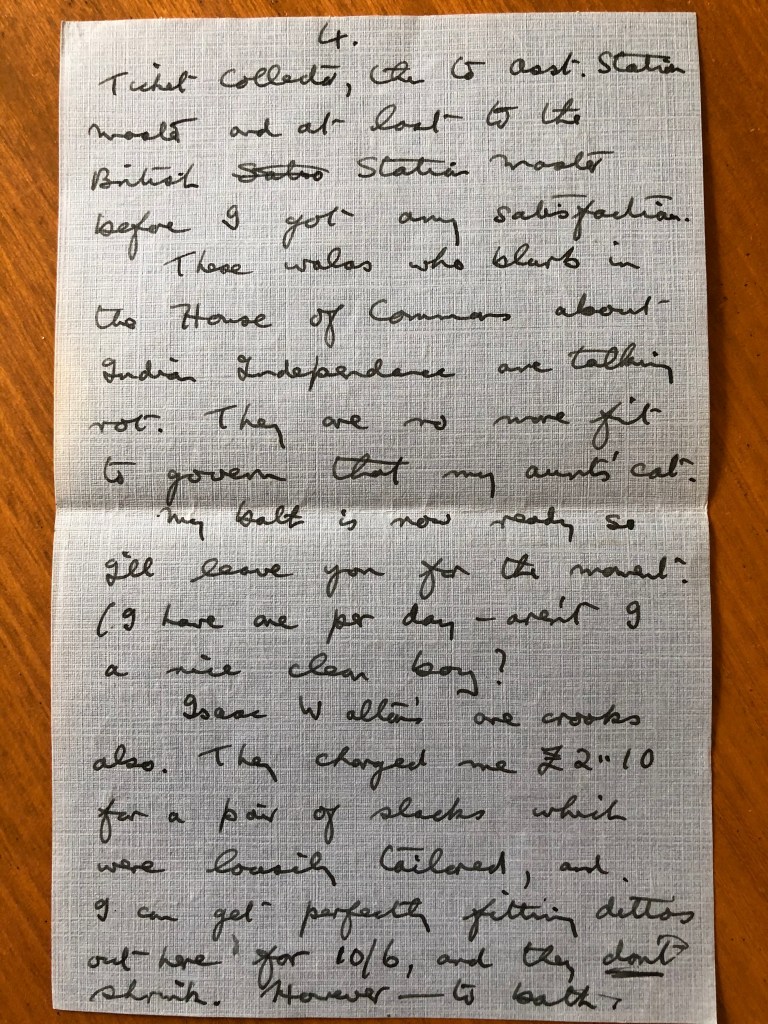 4.
Ticket Collector, then to asst. Station
master and at last to the
British Statio Station master
before I got any satisfaction.
These walas who blurb in
the House of Commons about
Indian Independence are talking
rot. They are no more fit
to govern that my aunts' cat.
My bath is now ready so
I'll leave you for the moment.
(I have one per day – aren't I
a nice clean boy?
Isaac Walton's are crooks
also. They charged me £2"10
for a pair of slacks which
were lousily tailored, and
I can get perfectly fitting dittos
out here for 10/6, and they don't
shrink. However — to bath.